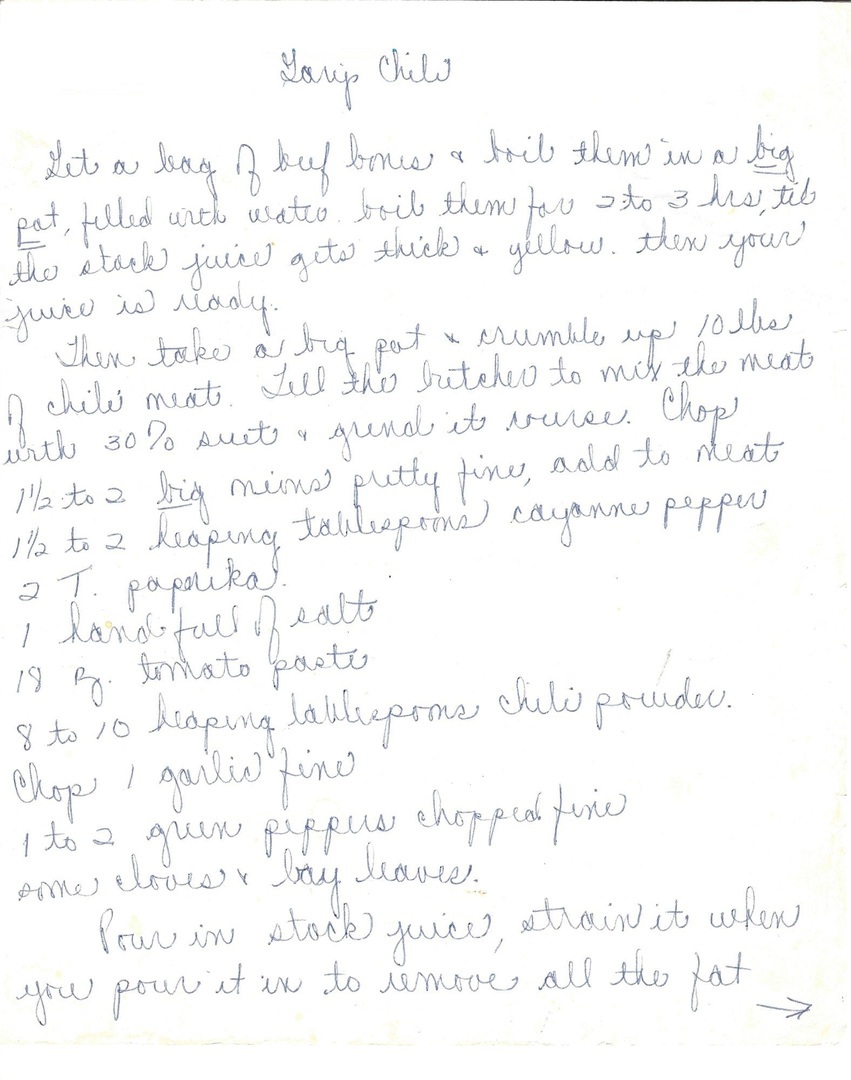 Chili
Get a bag of beef bones & boil them in a big
pot, filled with water. boil them for 2 to 3 hrs, til
the stock juice gets thick & yellow. then your
juice is ready.
Then take a big pot & crumble up 10 lbs
of chili meat. Tell the butcher to mix the meat
with 30% suet & grend it course. Chop
1 1/2 to 2 big onions pretty fine, add to meat
1 1/2 to 2 heaping tablespoons cayanne pepper
2 T. paprika.
1 hand full of salt
18 oz. tomato paste
8 to 10 heaping tablespoons chili powder.
Chop 1 garlic fine
1 to 2 green peppers chopped fine
some cloves & bay leaves.
Pour in stock juice, strain it when
you pour it in to remove all the fat
→